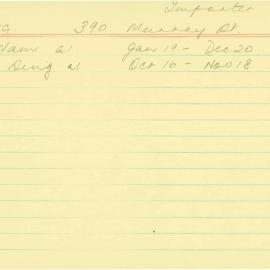 Importer
G. 390 Murray St.
Nam at Jan 19 - Dec 20
Deng at Oct 16 - Nov 18